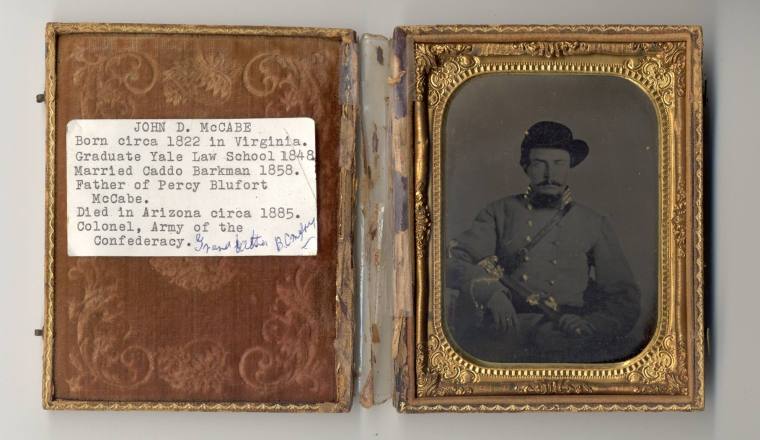 JOHN D. McCABE
Born circa 1822 in Virginia.
Graduate Yale Law School 1848
Married Caddo Barkman 1858.
Father of Percy Blufort
McCabe.
Died in Arizona circa 1885.
Colonel, Army of the
Confederacy. Grandfather